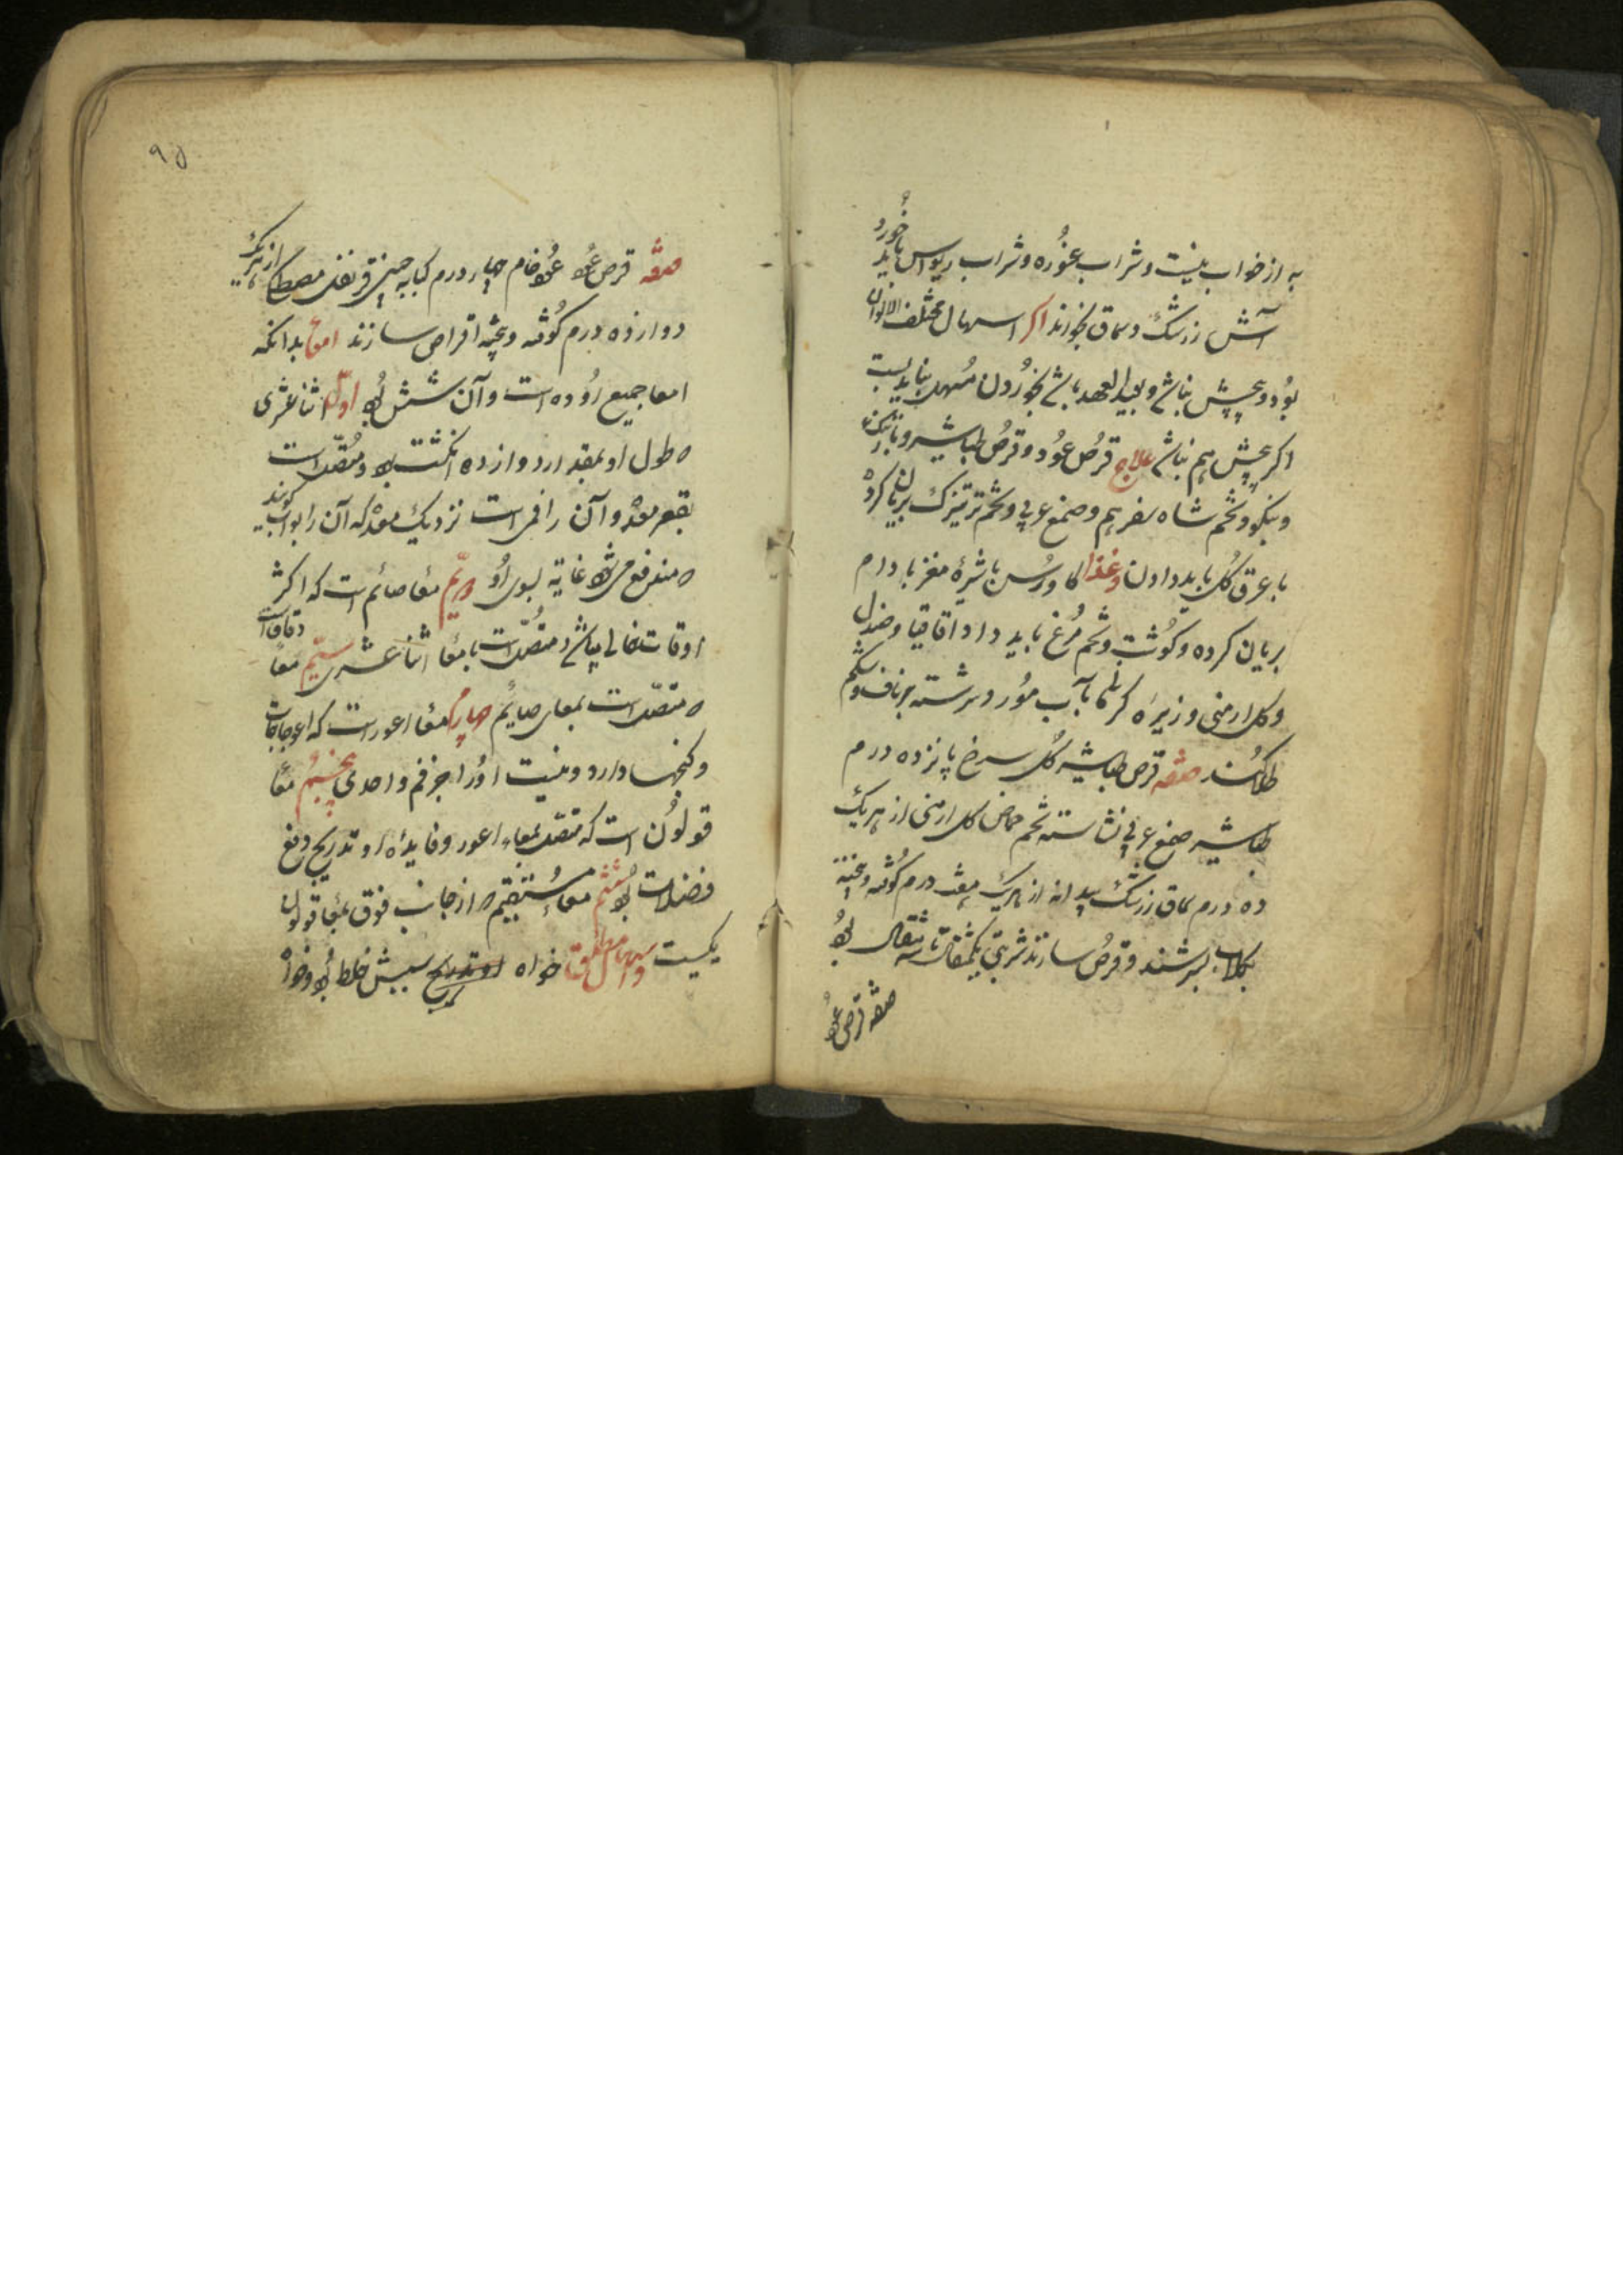 به از خواب نیست و شراب غوره و شراب ریواس باید خورد
آش زرشک و سماق بخورند اگر اسهال مختلف الالوان
بود و پیچش نباشد و بعید العهد باشد بخوردن مسهل نباید بست
اگر پیچش هم نباشد علاج قرص عود و قرص طباشیر و بارتنک
و تخم شاه سفرهم و صمغ عربی و تخم تره تیزک بریان کرده
با عرق گل باید دادن و غذا کاورس با شیرهٔ مغز بادام
بریان کرده و گوشت و تخم مرغ باید داد اقاقیا و صندل
و گل ارمنی و زیره کرمانی بآب مورد سرشته بر ناف و شکم
طلا کنند صفه قرص طباشیر گل سرخ پانزده درم
طباشیر صمغ عربی نشاسته تخم حماض گل ارمنی از هریک
ده درم سماق زرشک بیدانه از هریک هفت درم کوفته و بیخته
بگلاب بسرشند و قرص سازند شربتی یکمثقال تا سه مثقال بود
صفه قرص عود
۹۵
صفه قرص عود عود خام چهار درم کبابه چینی قرنفل مصطکی از هریک
دوازده درم کوفته و بیخته اقراص سازند امعا بدانکه
امعا جمیع روده است و آن شش بود اول اثنا عشری
ه طول او بمقدار دوازده انکشت بود و متصل است
بقعر معده و آن را فمی است نزدیک معده که آن را بواب گویند
ه مندفع می شود غایة بسوی او دویم معا صائم است که اکثر
اوقات خالی باشد و متصل است با معا اثنا عشری سیم معا دقاق است
ه متصل است بمعای صایم چهارم معا اعور است که اعوجاجات
و کنجها دارد و نیست او را جز فم واحدی پنجم معا
قولون است که متصل بمعاء اعور و فایده او تدریج دفع
فضلات بود ششم معا مستقیم ه از جانب فوق بمعا قولون
یکیست و اسهال مطلق خواه بتدریج سببش خلط بود و خواه